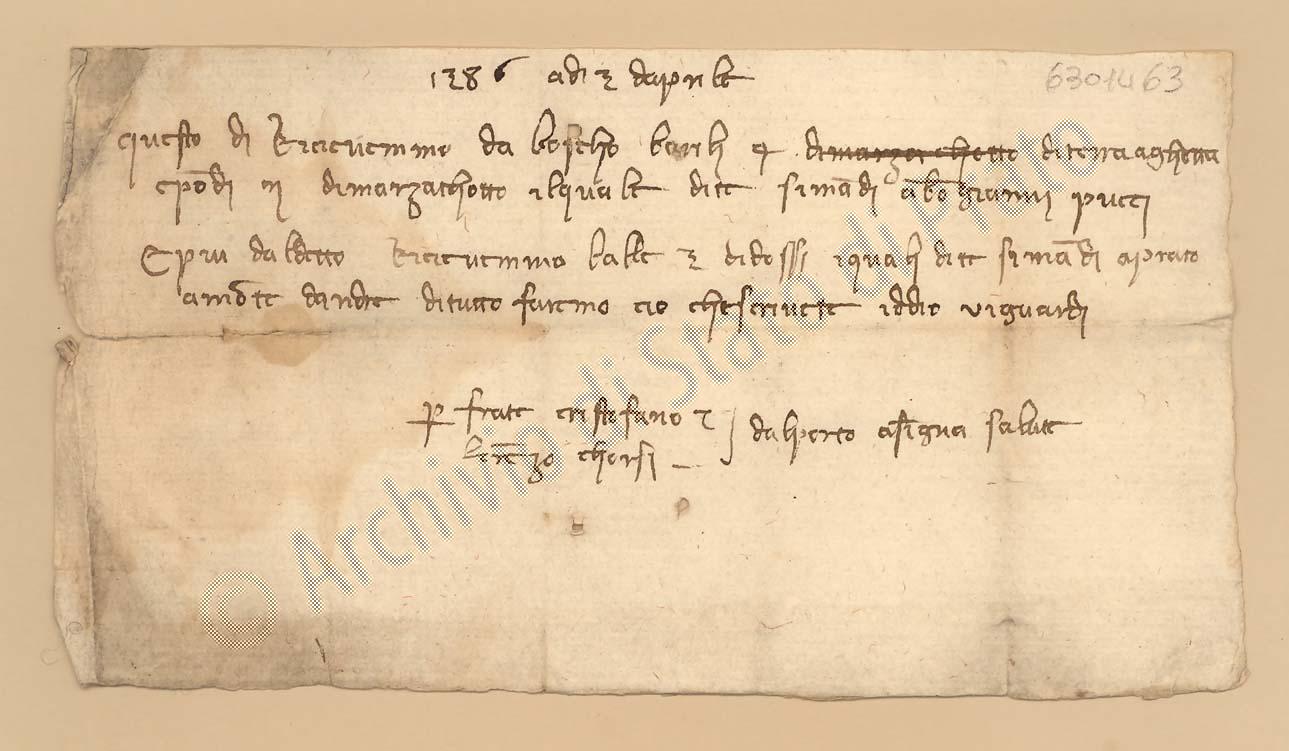 1386 adi 2 daprile
6301463
questo di riceuemmo da boscho barili 4 dimarzachotto diterraaghetta
epõdi dimarzachotto ilquale dite simãdi a giannj puccj
Epiu daldetto riceuemmo balle 2 didossi iquali dite simãdi aprato
amõte dandre dituttofaremo cio chescriuete iddio viguardi
P frate cristofano e
lorẽzo chorsi
dalporto asigna salute
© Archivio di Stato di Prato